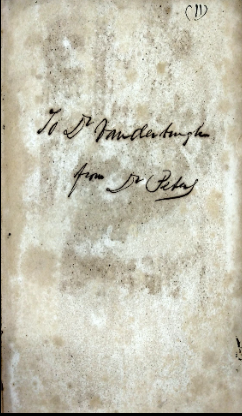 (11)
To Dr Vanderburgh
from Dr Peters